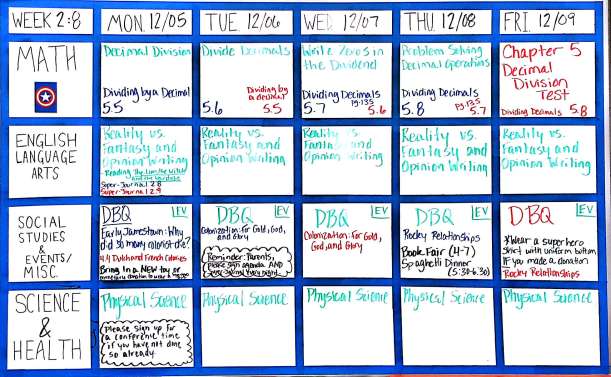 WEEK 2:8
MON. 12/05
TUE. 12/06
WED. 12/07
THU. 12/08
FRI. 12/09
MATH
Decimal Division
Dividing by a Decimal
5.5
Divide Decimals
Dividing by
a decimal
5.6
5.5
Write Zeros in
the Dividend
Dividing Decimals
pg.135
5.7
5.6
Problem Solving
Decimal Operations
Dividing Decimals
pg.135
5.8
5.7
Chapter 5
Decimal
Division
TEST
Dividing Decimals 5.8
ENGLISH
LANGUAGE
ARTS
Reality vs.
Fantasy and
Opinion Writing
- Reading The Lion, the Witch
and the Wardrobe
Super-Journal 2.8
Super-Journal 2.9
Reality vs.
Fantasy and
Opinion Writing
Reality vs.
Fantasy and
Opinion Writing
Reality vs.
Fantasy and
Opinion Writing
Reality vs.
Fantasy and
Opinion Writing
SOCIAL
STUDIES
&
EVENTS/
MISC.
DBQ
EV
Early Jamestown: Why
did so many colonist die?
4.4 Dutch and French Colonies
Bring in a NEW toy or
DBQ
EV
Colonization: For Gold, God,
and Glory
Reminder: Parents,
please sign agenda AND
DBQ
EV
Colonization: For Gold,
God, and Glory
DBQ
EV
Rocky Relationships
Book Fair (4-7)
Spaghetti Dinner
(5:30-6:30)
DBQ
EV
*Wear a superhero
shirt with uniform bottom
if you made a donation!
Rocky Relationships
SCIENCE
&
HEALTH
Physical Science
Please sign up for
a conference time
if you have not done
so already.
Physical Science
Physical Science
Physical Science
Physical Science